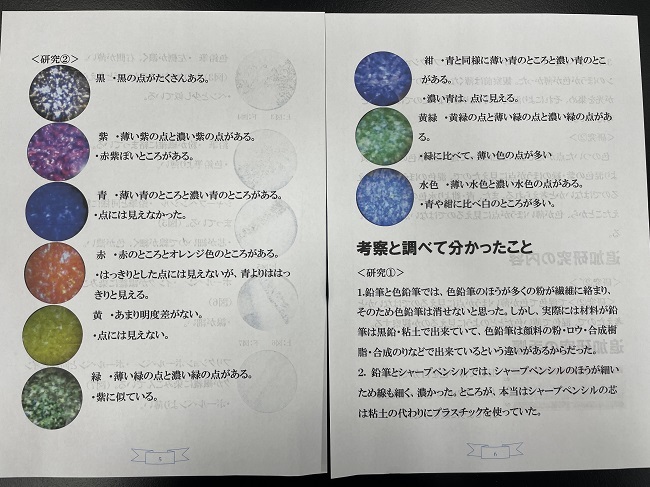 <研究②>
黒 ・黒の点がたくさんある。
紫 ・薄い紫の点と濃い紫の点がある。
・赤紫ぽいところがある。
青 ・薄い青のところと濃い青のところがある。
・点には見えなかった。
赤 ・赤のところとオレンジ色のところがある。
・はっきりとした点には見えないが、青よりははっ
きりと見える。
黄 ・あまり明度差がない。
・点には見えない。
緑 ・薄い緑の点と濃い緑の点がある。
・紫に似ている。
5
紺 ・青と同様に薄い青のところと濃い青のとこ
がある。
・濃い青は、点に見える。
黄緑 ・黄緑の点と薄い緑の点と濃い緑の点があ
る。
・緑に比べて、薄い色の点が多い
水色 ・薄い水色と濃い水色の点がある。
・青や紺に比べ白のところが多い。
考察と調べて分かったこと
<研究①>
1.鉛筆と色鉛筆では、色鉛筆のほうが多くの粉が繊維に絡まり、
そのため色鉛筆は消せないと思った。しかし、実際には材料が鉛
筆は黒鉛・粘土で出来ていて、色鉛筆は顔料の粉・ロウ・合成樹
脂・合成のりなどで出来ているという違いがあるからだった。
2. 鉛筆とシャープペンシルでは、シャープペンシルのほうが細い
ため線も細く、濃かった。ところが、本当はシャープペンシルの芯
は粘土の代わりにプラスチックを使っていた。